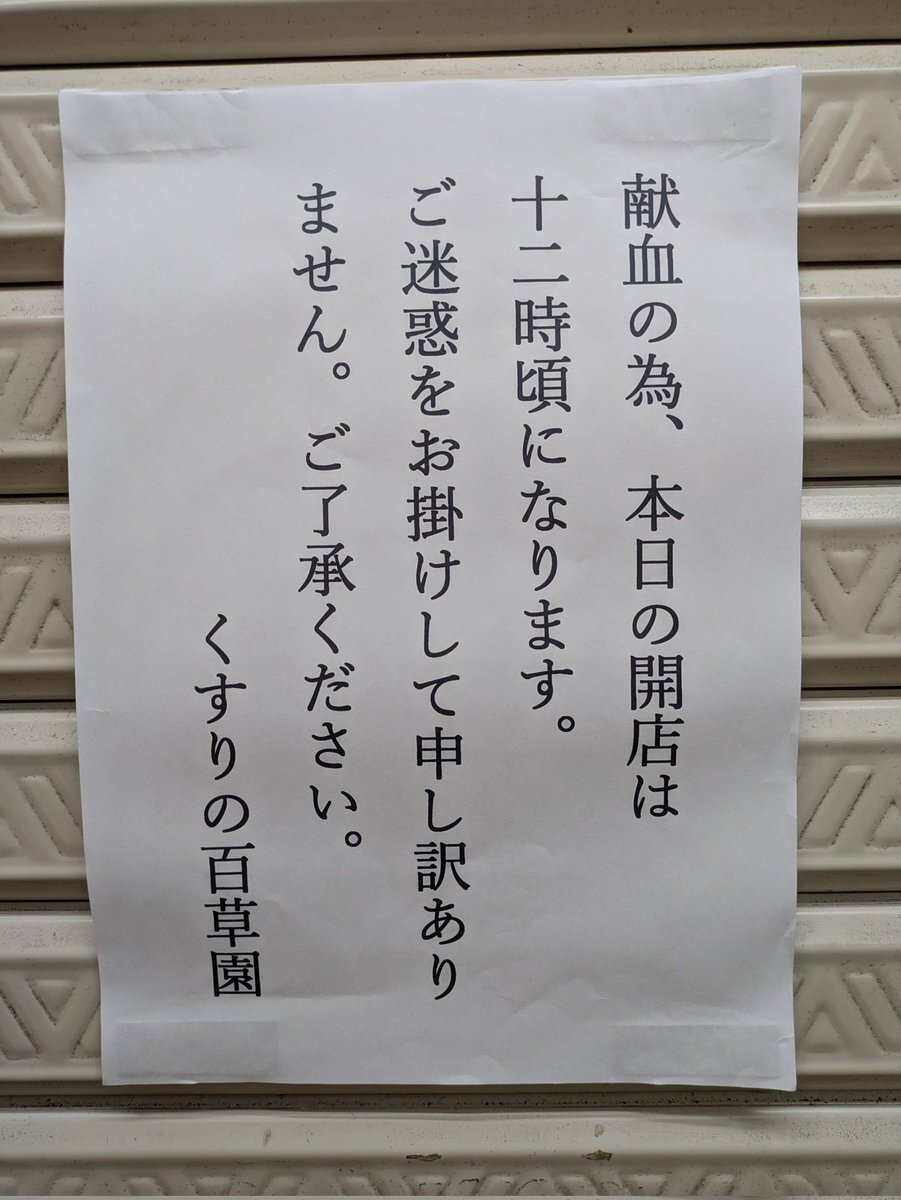 献血の為、本日の開店は
十二時頃になります。
ご迷惑をお掛けして申し訳あり
ません。ご了承ください。
くすりの百草園